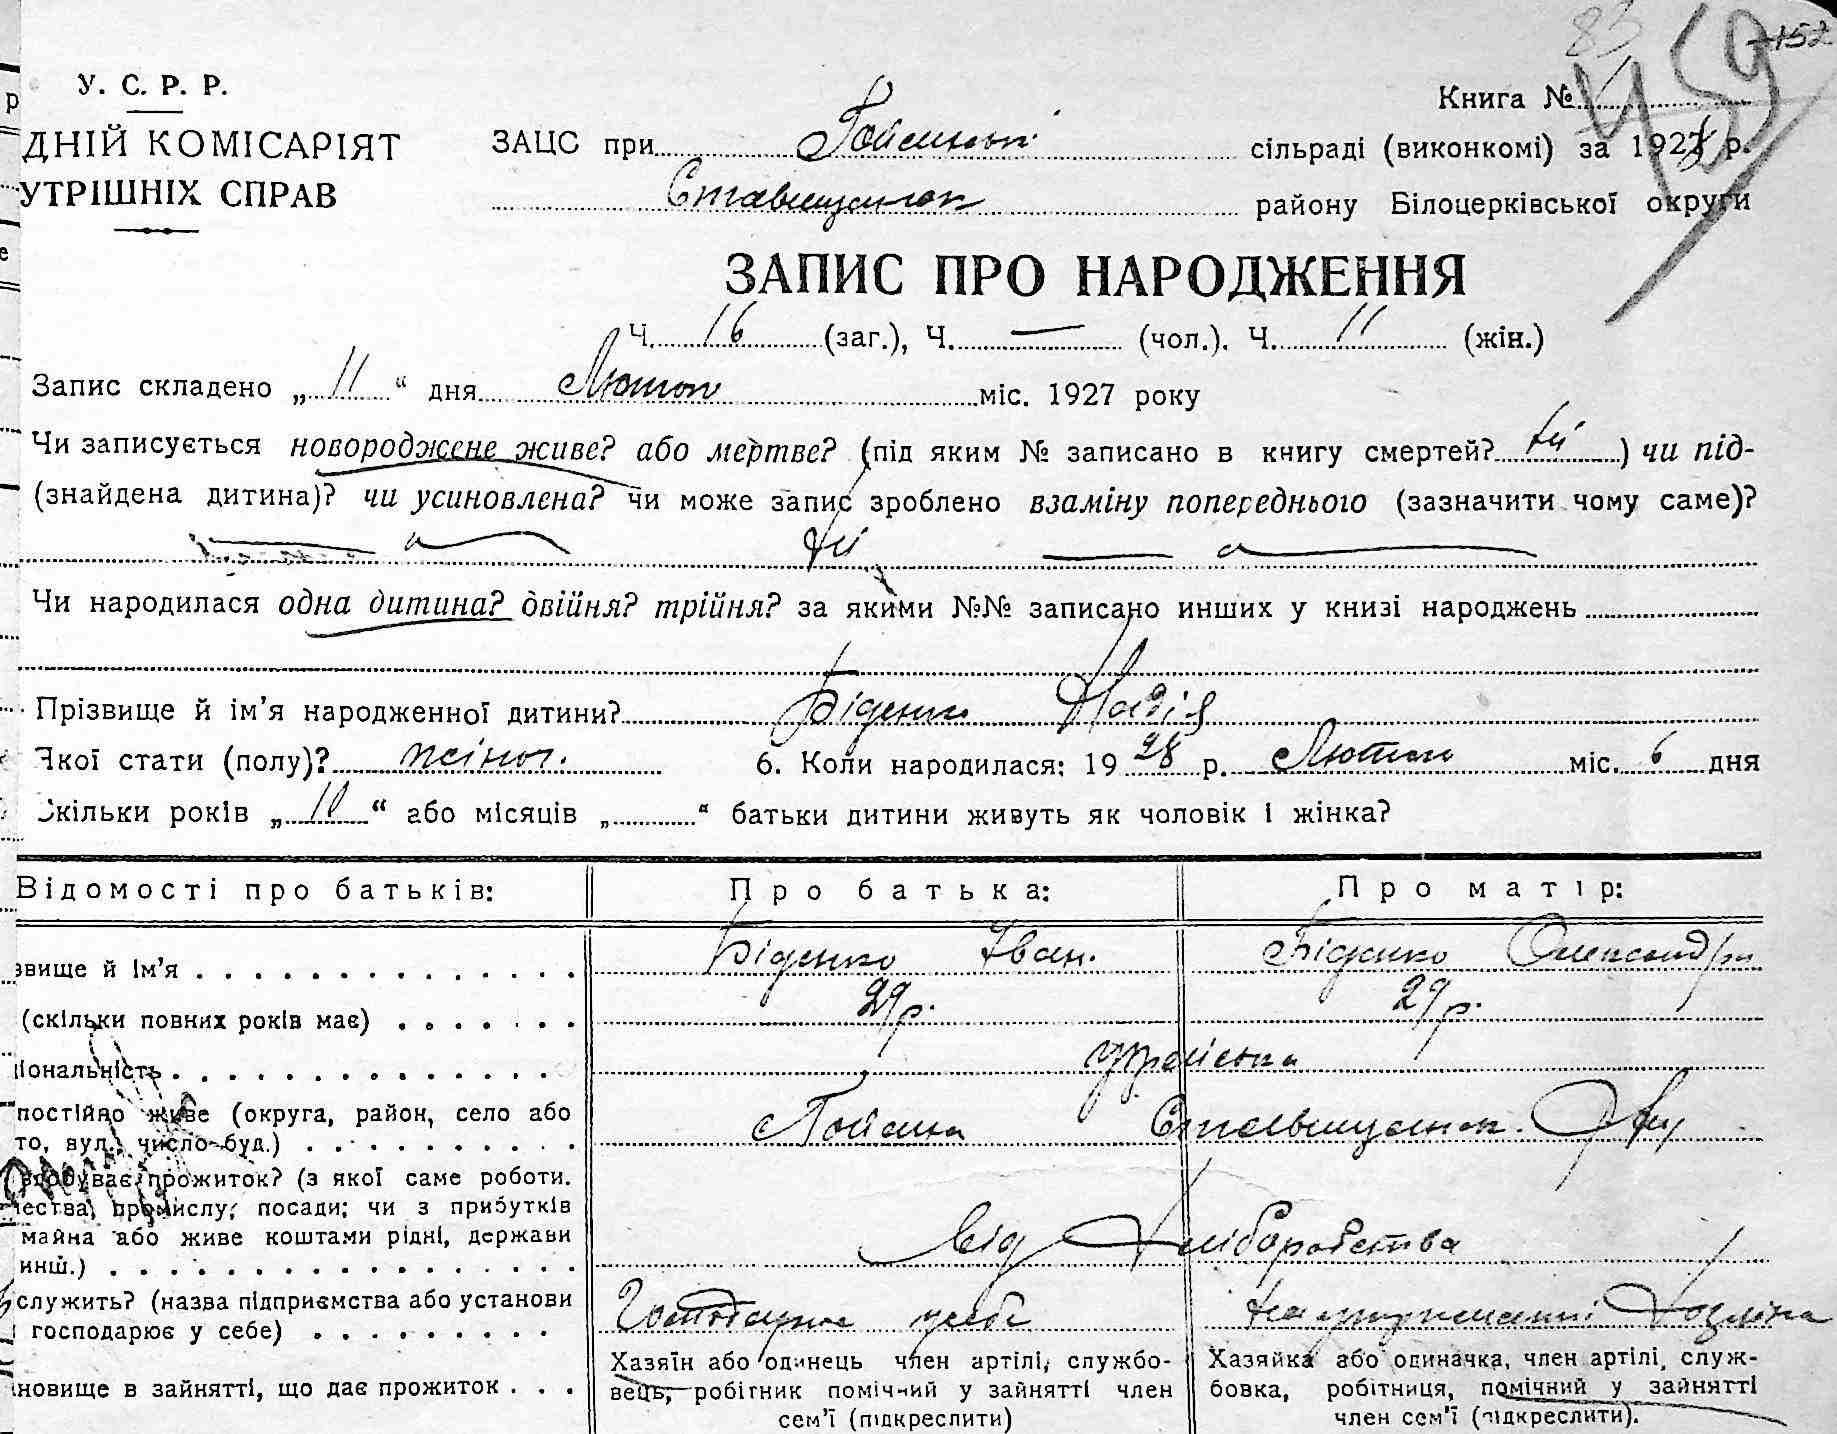 83 459 152
У. С. Р. Р.
Книга №
ДНІЙ КОМІСАРІЯТ
ЗАЦС при сільраді (виконкомі) за 1928 р.
УТРІШНІХ СПРАВ
району Білоцерківської округи
ЗАПИС ПРО НАРОДЖЕННЯ
Ч. 16 (заг.), Ч. — (чол.). Ч. 11 (жін.)
Запис складено „ 11 “ дня Лютого міс. 1927 року
Чи записується новороджене живе? або мертве? (під яким № записано в книгу смертей? ні ) чи під-
(знайдена дитина)? чи усиновлена? чи може запис зроблено взаміну попереднього (зазначити чому саме)?
ні
Чи народилася одна дитина? двійня? трійня? за якими №№ записано инших у книзі народжень
Прізвище й ім’я народженної дитини? Біденко Надія
Якої стати (полу)? жіноч. 6. Коли народилася: 19 28 р. Лютого міс. 6 дня
Скільки років „ 10 “ або місяців „ “ батьки дитини живуть як чоловік і жінка?
Відомості про батьків: Про батька: Про матір:
звище й ім’я Біденко Іван. Біденко Олександра
(скільки повних років має) 29 р. 29 р.
ціональність українська
постійно живе (округа, район, село або
то, вул., число буд.) Ставищанськ.
здобуває прожиток? (з якої саме роботи.
чества, промислу; посади; чи з прибутків
майна або живе коштами рідні, держави
инш.) Від Хліборобства
служить? (назва підприємства або установи
господарює у себе) Господарює у себе На утриманні Хазяїна
новище в зайнятті, що дає прожиток
Хазяїн або одинець член артілі, службо-
вець, робітник помічний у зайнятті член
сем’ї (підкреслити)
Хазяйка або одиначка, член артілі, служ-
бовка, робітниця, помічний у зайнятті
член сем’ї (підкреслити).